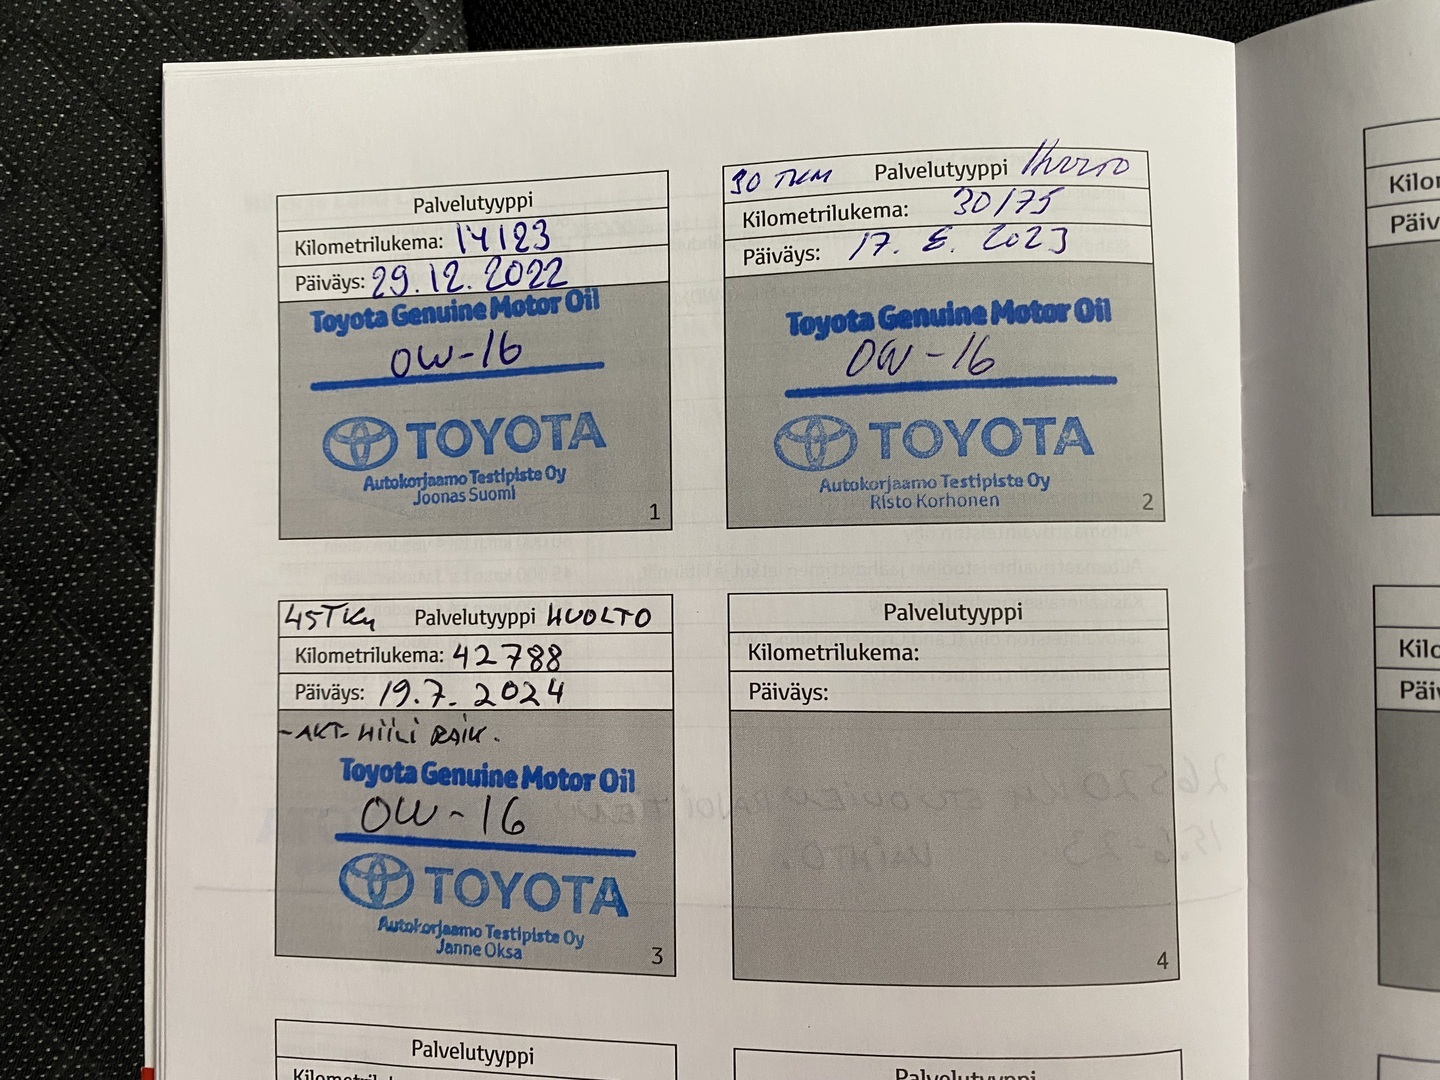 Palvelutyyppi
Kilometrilukema: 14123
Päiväys: 29.12.2022
Toyota Genuine Motor Oil
0W-16
TOYOTA
Autokorjaamo Testipiste Oy
Joonas Suomi
1
30 TKM Palvelutyyppi Huolto
Kilometrilukema: 30175
Päiväys: 17. 8. 2023
Toyota Genuine Motor Oil
0W-16
TOYOTA
Autokorjaamo Testipiste Oy
Risto Korhonen
2
45TKM Palvelutyyppi HUOLTO
Kilometrilukema: 42788
Päiväys: 19.7.2024
-AKT-HIILI RAIK.
Toyota Genuine Motor Oil
0W-16
TOYOTA
Autokorjaamo Testipiste Oy
Janne Oksa
3
Palvelutyyppi
Kilometrilukema:
Päiväys:
4
Palvelutyyppi
Palvelutyyppi